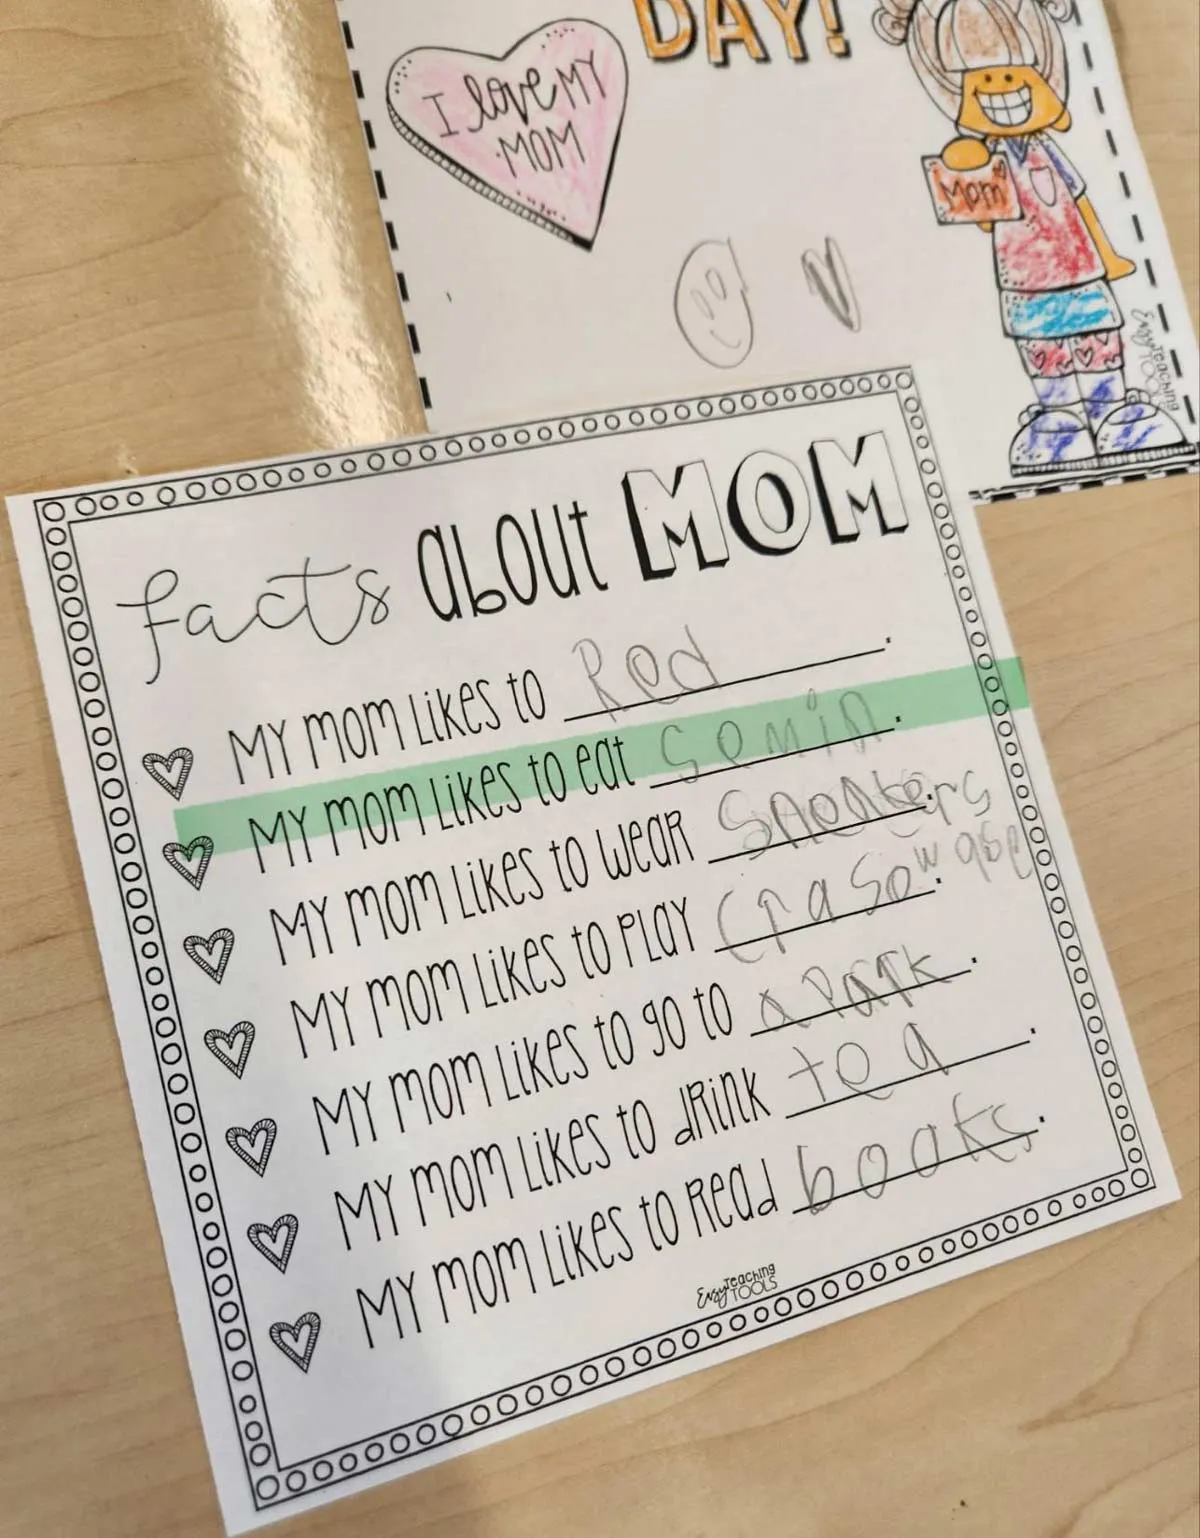 DAY!
I love MY
MOM
Mom
Easy Teaching
TOOLS
facts about MOM
MY MOM LIKES TO Red.
MY MOM LIKES TO EAT Semin.
MY MOM LIKES TO WEAR Sneakers.
MY MOM LIKES TO PLAY
MY MOM LIKES TO GO TO a Park.
MY MOM LIKES TO DRINK tea.
MY MOM LIKES TO READ books.
Easy Teaching
TOOLS